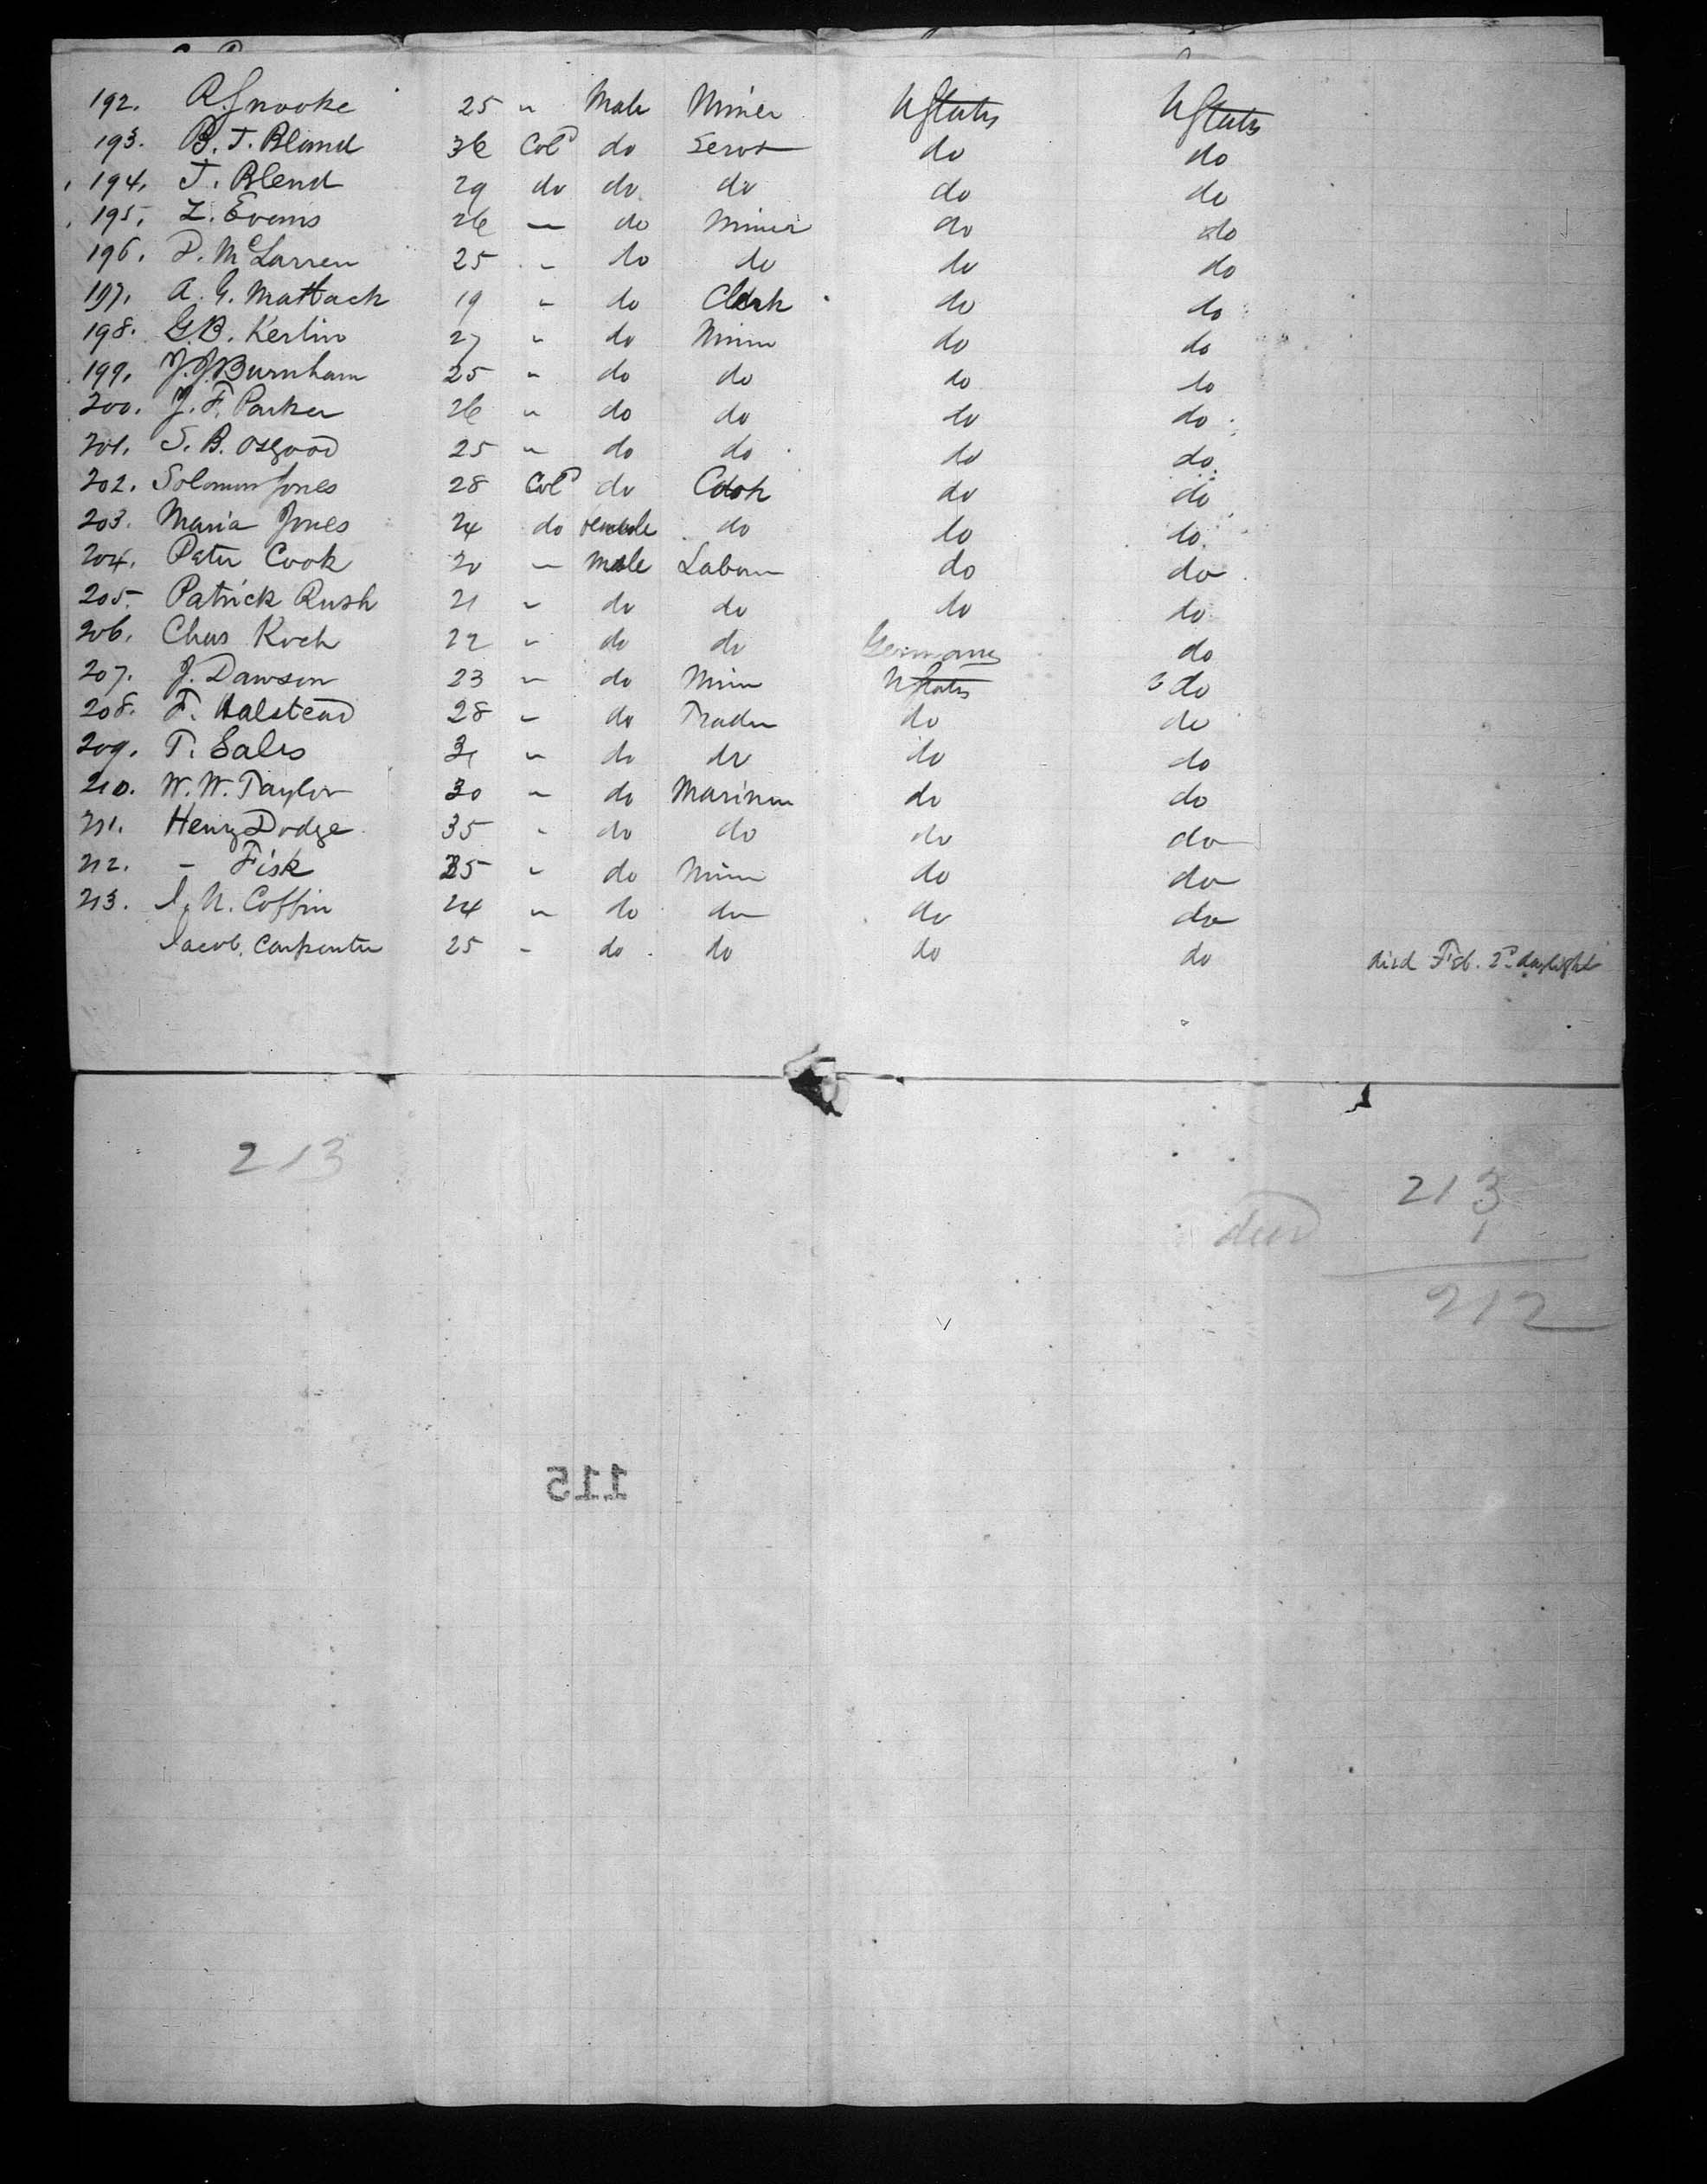 192. R. Snooke 25 " Male Miner UStates UStates
193. B. T. Bland 36 Cold do Servt do do
194. T. Blend 29 do do do do do
195. Z. Evans 26 — do Miner do do
196. P. McLarren 25 - do do do do
197. A. G. Mattack 19 " do Clerk do do
198. G. B. Kerlin 27 " do Miner do do
199. J. J. Burnham 25 " do do do do
200. J. F. Parker 26 " do do do do
201. S. B. Osgood 25 " do do do do
202. Solomon Jones 28 Cold do Cook do do
203. Maria Jones 24 do female do do do
204. Peter Cook 20 — male Laborer do do
205. Patrick Rush 21 " do do do do
206. Chas Koch 22 " do do Germany do
207. J. Dawson 23 " do Miner UStates do
208. F. Halstead 28 " do Trader do do
209. T. Sales 31 " do do do do
210. W. W. Taylor 30 " do Mariner do do
211. Henry Dodge 35 " do do do do
212. - Fisk 35 " do Miner do do
213. I. N. Coffin 24 " do do do do
Jacob. Carpenter 25 - do do do do died Feb. 2d daylight
213
213
died 1
212
115